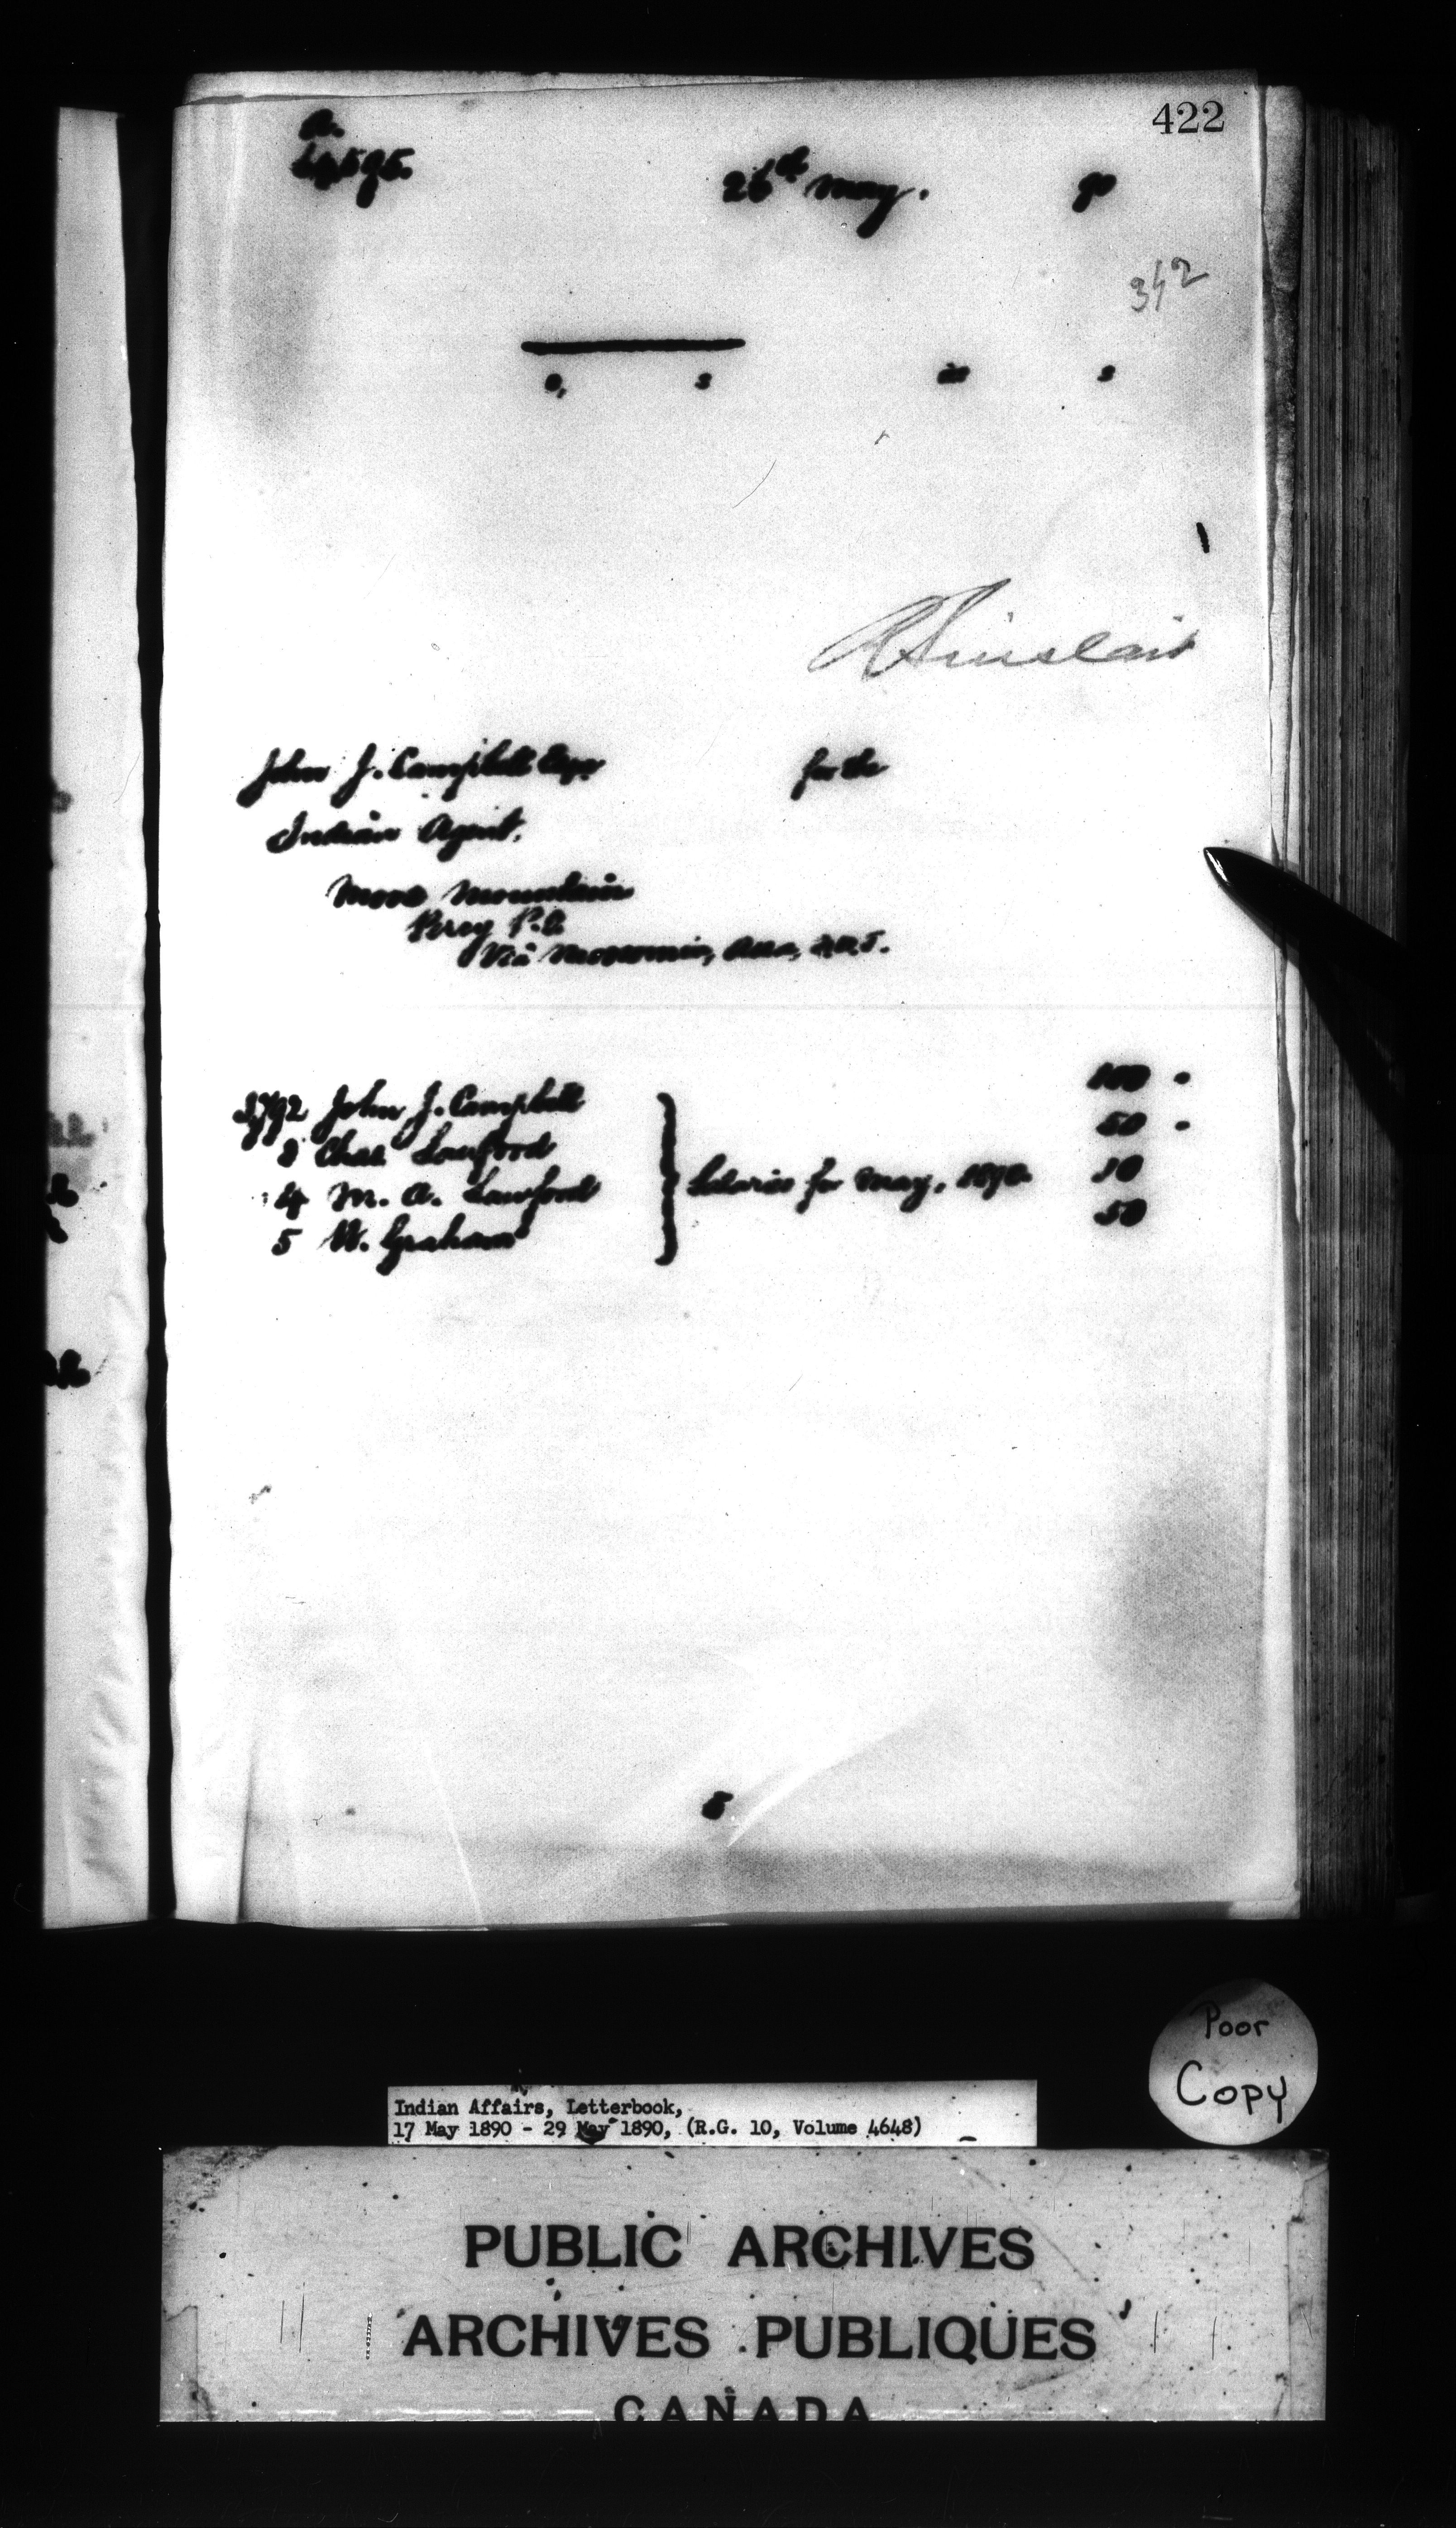 422
26th May. 90
342
s
s
R Sinclair
John J. Campbell Esqr
for the
Indian Agent,
Moose Mountain
Percy P.O.
Via Moosomin, Assa, N.W.T.
John J. Campbell 100
Chas Lawford 50
4 M. A. Lawford Salaries for May, 1890. 10
5 W. Graham 50
Poor
Copy
Indian Affairs, Letterbook,
17 May 1890 - 29 May 1890, (R.G. 10, Volume 4648)
PUBLIC ARCHIVES
ARCHIVES PUBLIQUES
CANADA